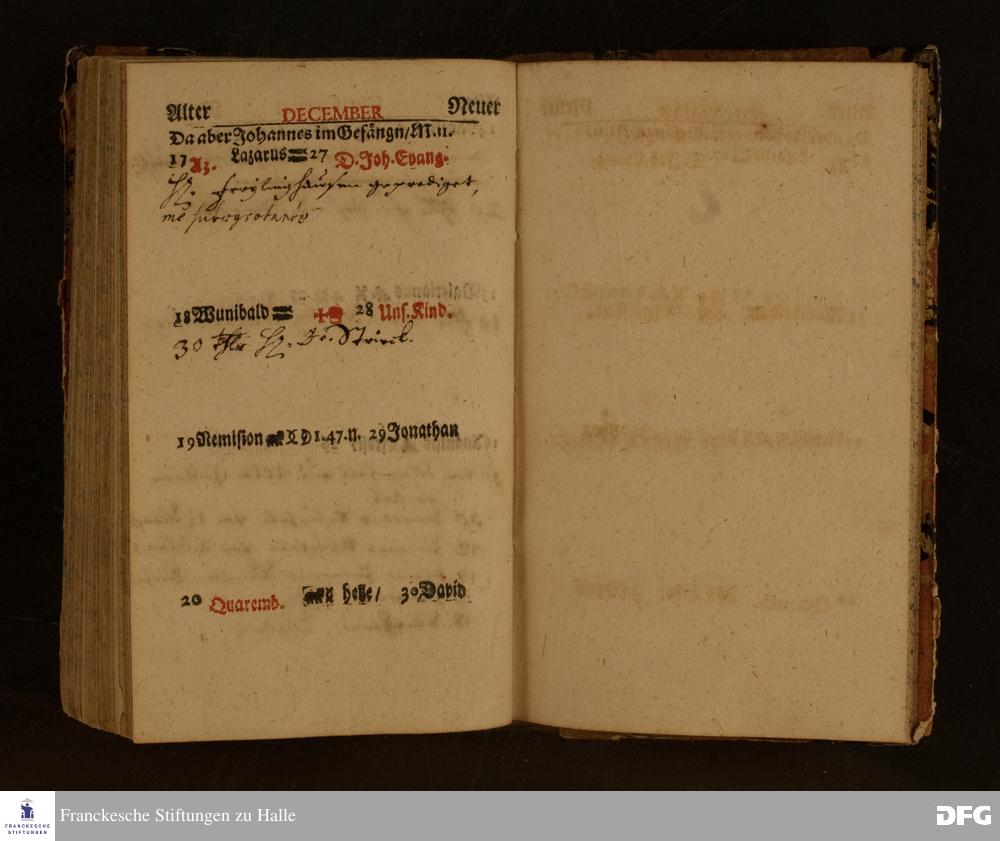 Alter DECEMBER Neuer
Da aber Johannes im Gefängn/ M. 11.
17 Az. Lazarus 27 D. Joh. Evang.
H. Freylinghausen geprediget,
me
18 Wunibald 28 Uns. Kind.
30 Thlr H. Strick.
19 Nemision 1. 47. n. 29 Jonathan
20 Quaremb. helle/ 30 David
Franckesche Stiftungen zu Halle
FRANCKESCHE
STIFTUNGEN
DFG